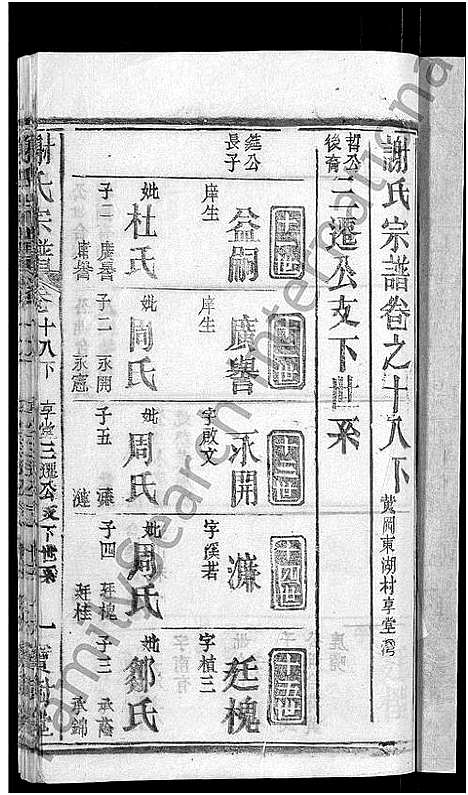 謝氏宗譜卷之十八下 黃岡東湖村享堂灣
哲公後裔 三遷公支下世系
十一世
益嗣
庠生
公長子
妣 杜氏
子二 廣譽
十二世
廣譽
庠生
妣 周氏
子二 永開 永憲
十三世
永開
字啟文
妣 周氏
子五 濂 漣
十四世
濂
字溪若
妣 周氏
子四 廷槐 廷桂
十五世
廷槐
字植三
妣 鄒氏
子三 承蔭 承錦
謝氏宗譜 卷十八下 享堂三遷公支下世系 一 寶樹堂
FamilySearch International